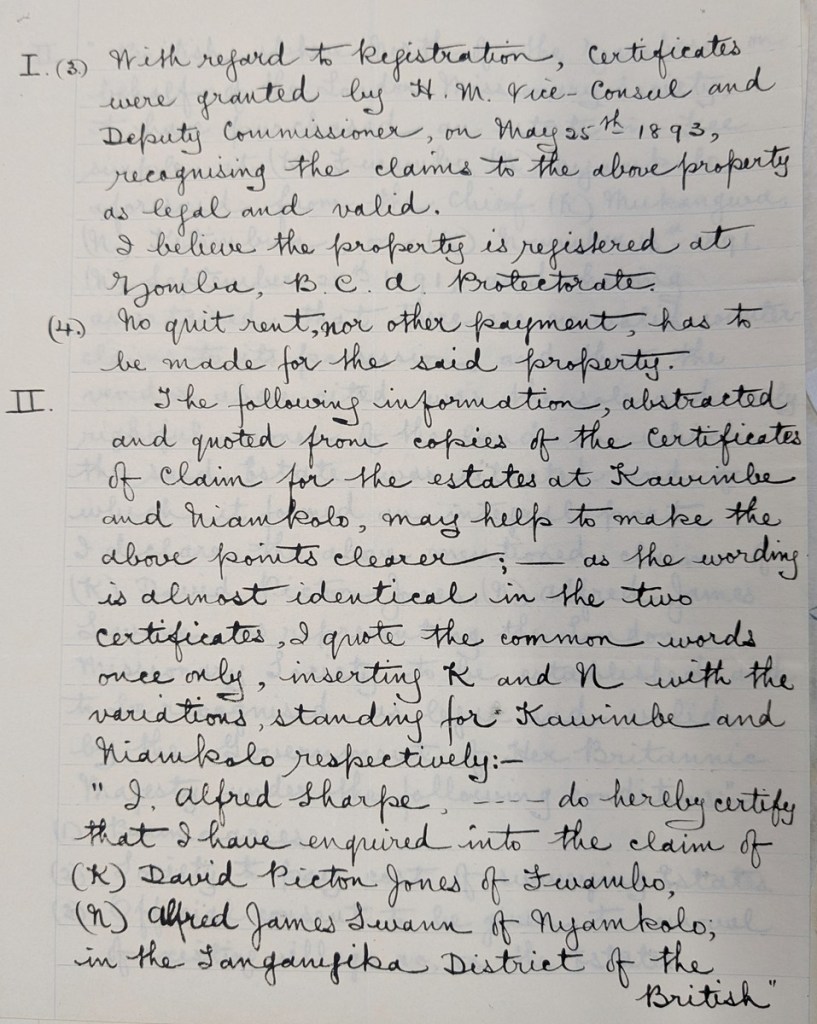 I. (3.) With regard to Registration, Certificates
were granted by H. M. Vice-Consul and
Deputy Commissioner, on May 25th 1893,
recognising the claims to the above property
as legal and valid.
I believe the property is registered at
Zomba, B. C. A. Protectorate.
(4.) No quit rent, nor other payment, has to
be made for the said property.
II. The following information, abstracted
and quoted from copies of the Certificates
of Claim for the estates at Kawimbe
and Niamkolo, may help to make the
above points clearer; — as the wording
is almost identical in the two
certificates, I quote the common words
once only, inserting K and N with the
variations, standing for Kawimbe and
Niamkolo respectively:—
" I, Alfred Sharpe, ---- do hereby certify
that I have enquired into the claim of
(K) David Picton Jones of Fwambo,
(N) Alfred James Swann of Nyamkolo;
in the Tanganyika District of the
British"